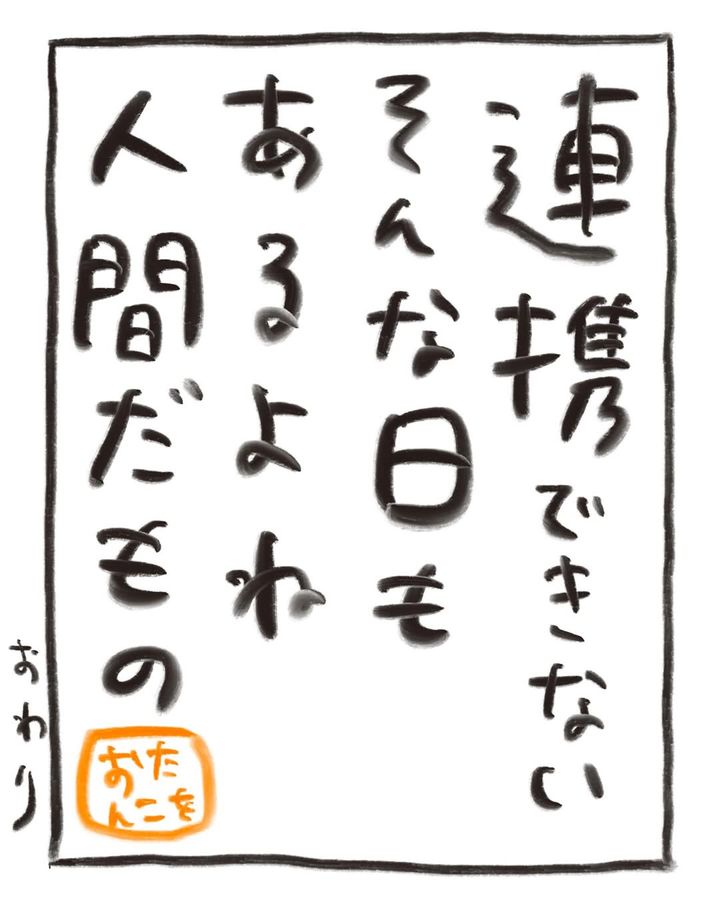 連携できない
そんな日も
あるよね
人間だもの
たこを
おん
おわり